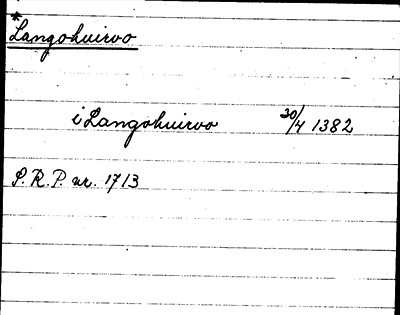 *
Langohuirvo
i Langohuirvo 30/4 1382
S.R.P. nr. 1713